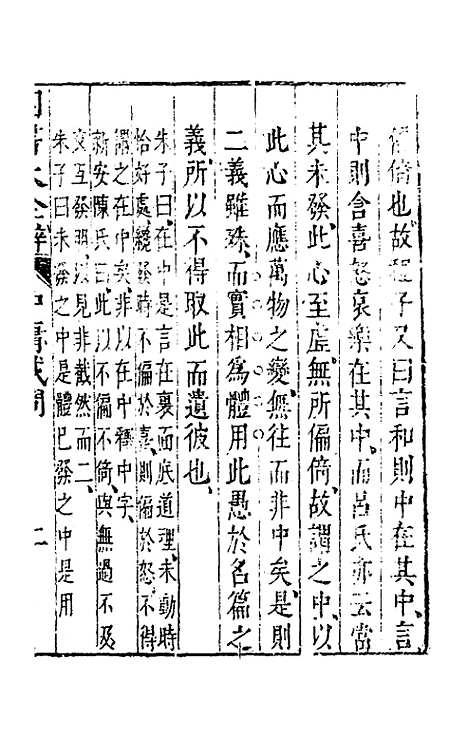 偏倚也故程子又曰言和則中在其中言
中則含喜怒哀樂在其中而呂氏亦云當
其未發此心至虛無所偏倚故謂之中以
此心而應萬物之變無往而非中矣是則
二義雖殊而實相為體用此愚於名篇之
義所以不得取此而遺彼也
朱子曰在中是言在裏面底道理未動時
恰好處纔發時不偏於喜則偏於怒不得
謂之在中矣非以在中釋中字
新安陳氏曰此以不偏不倚與無過不及
哀互發明以見非截然而二
朱子曰未發之中是體已發之中是用
四書大全辯 中庸或問 二